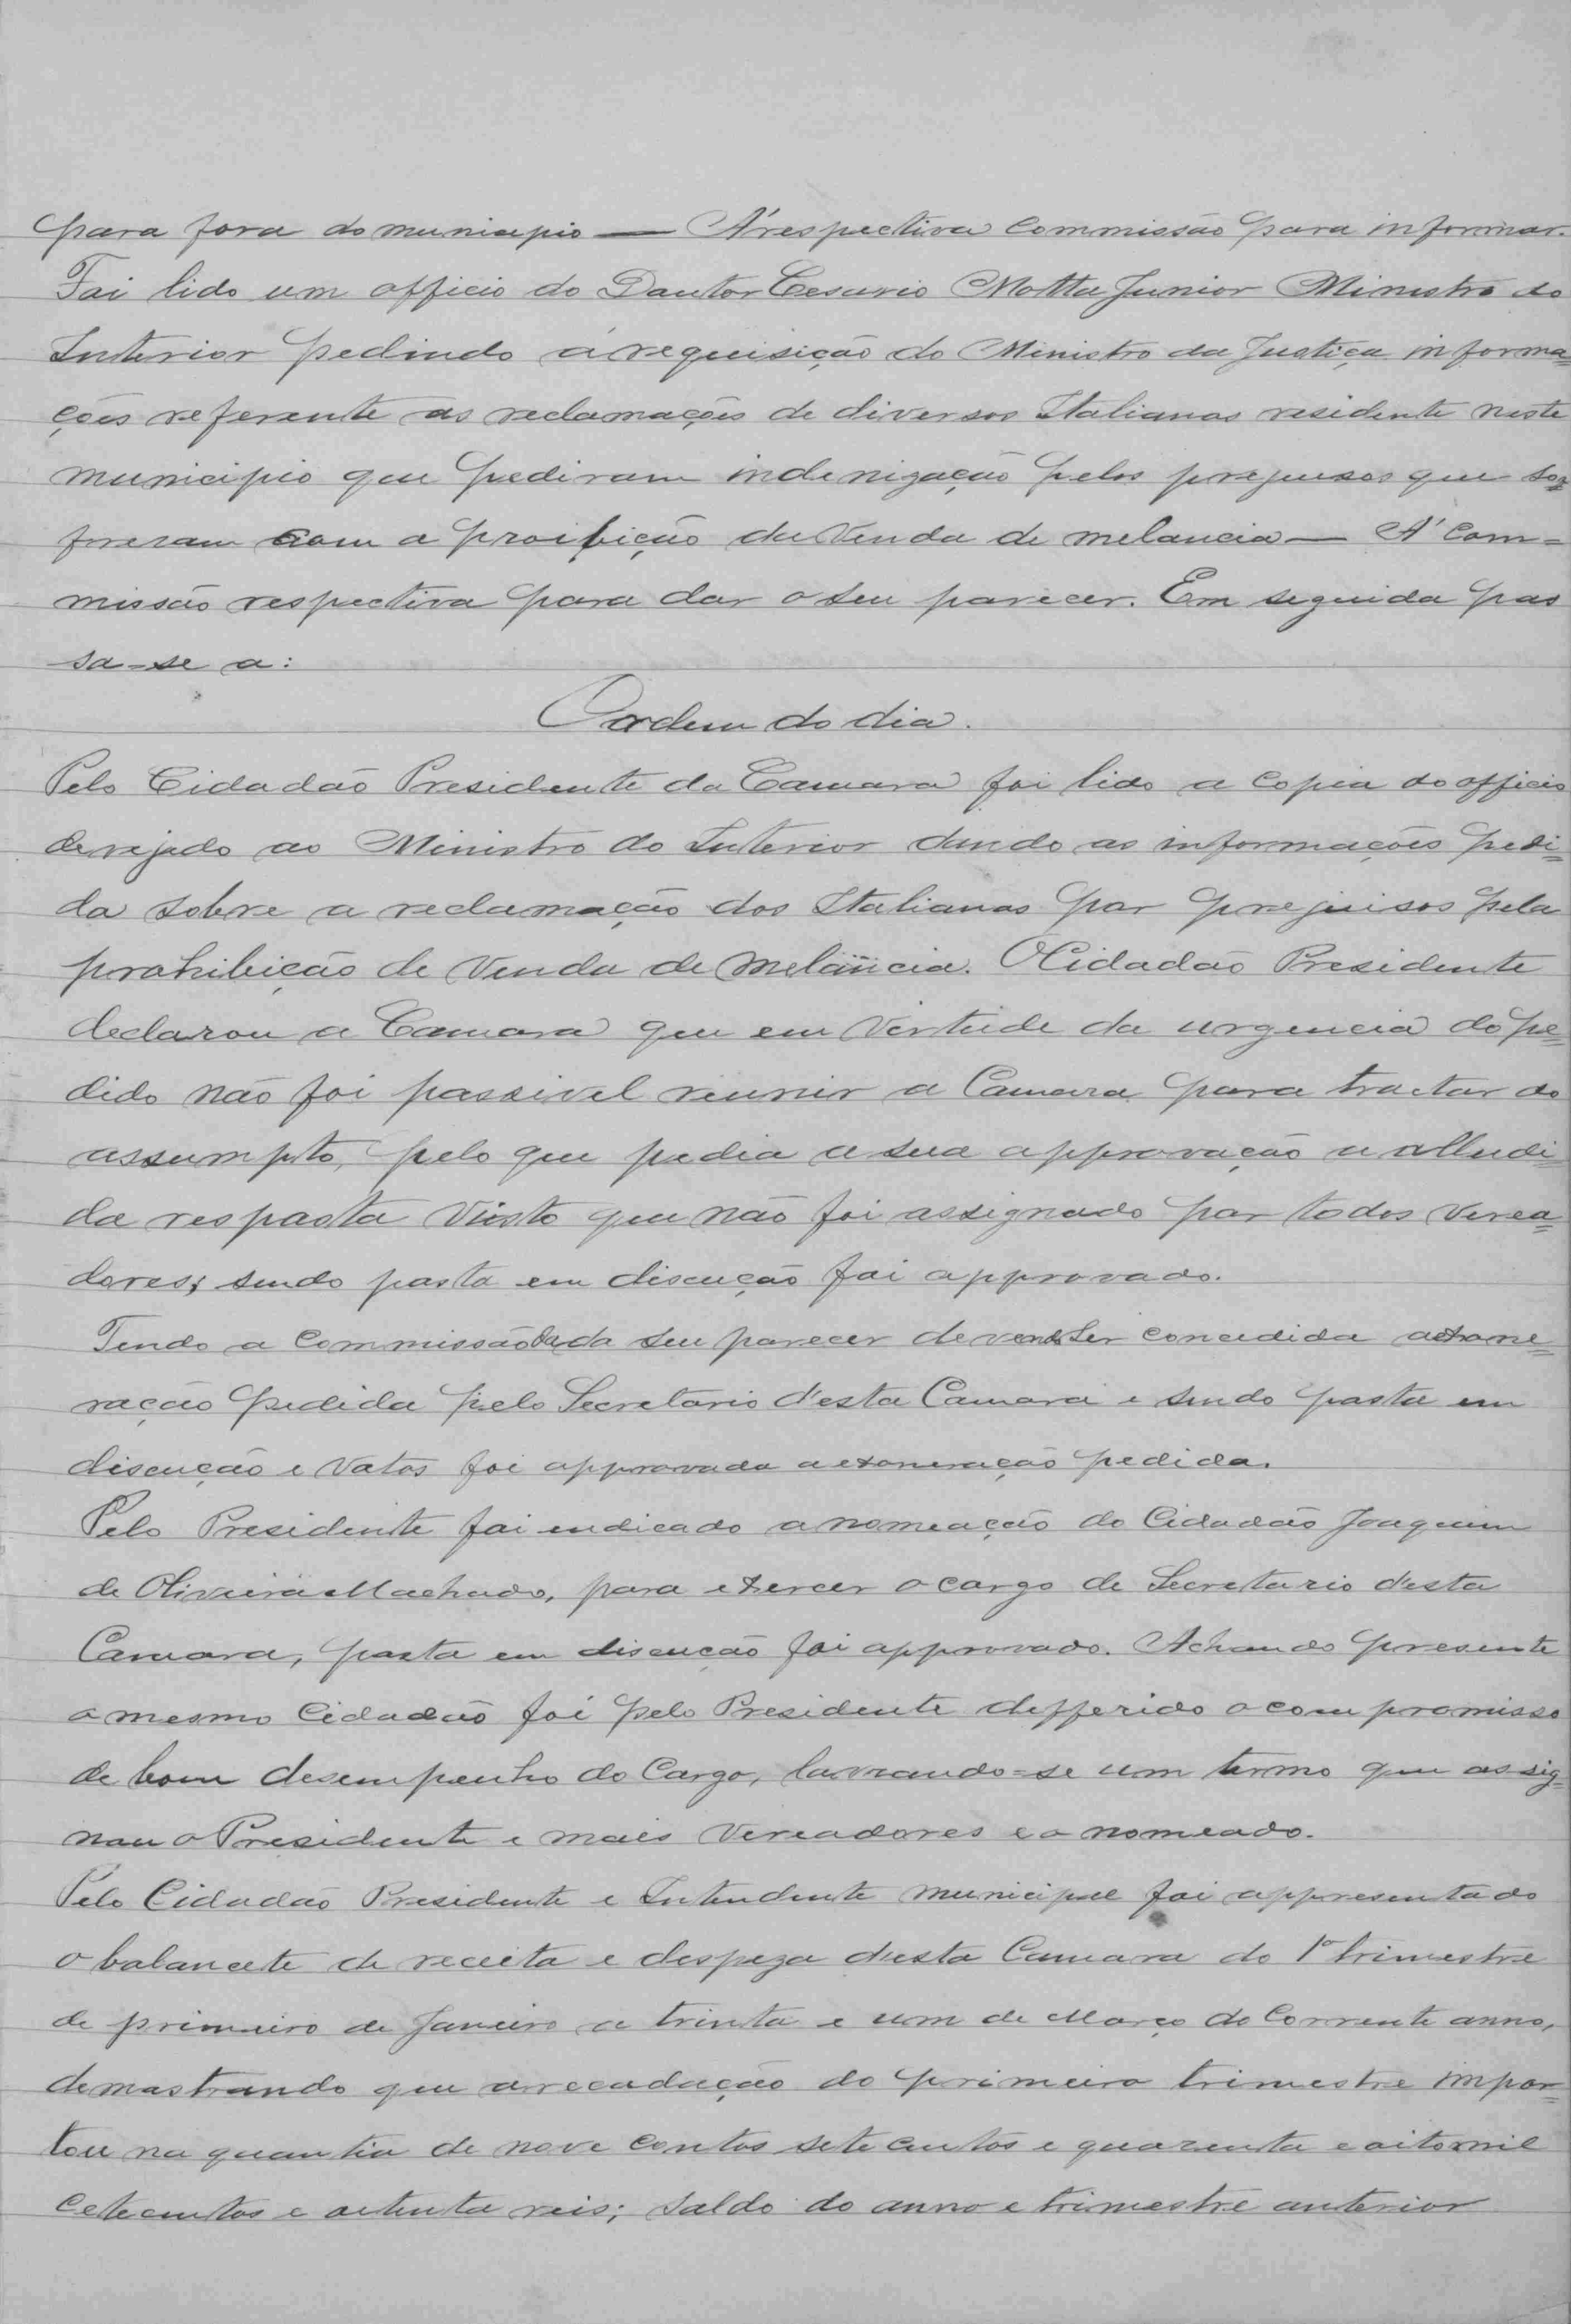 para fora do municipio — Á respectiva Commissão para informar.
Foi lido um officio do Doutor Cesario Motta Junior Ministro do
Interior pedindo a requisição do Ministro da Justiça informa=
ções referente as reclamações de diversos Italianos residente neste
municipio que pediram indenização pelos prejuisos que so=
freram com a proibição da Venda de melancia — Á Com=
missão respectiva para dar o seu parecer. Em seguida pas
sa-se a:
Ordem do dia.
Pelo Cidadão Presidente da Camara foi lido a copia do officio
derejido ao Ministro do Interior dando as informações pedi=
da sobre a reclamação dos Italianos por prejuisos pela
prohibição de Venda de Melancia. O Cidadão Presidente
declarou a Camara que em Virtude da urgencia do pe=
dido não foi possivel reunir a Camara para tractar do
assumpto, pelo que pedia a sua approvação a alludi=
da resposta Visto que não foi assignado por todos Verea=
dores; sendo posta em discução foi approvado.
Tendo a Commissão dado seu parecer devendo ser concedida a exone=
ração pedida pelo Secretario d'esta Camara e sendo posta em
discução e Votos foi approvada a exoneração pedida.
Pelo Presidente foi endicado a nomeação do Cidadão Joaquim
de Oliveira Machado, para exercer o cargo de Secretario d'esta
Camara, posta em discucão foi approvado. Achando presente
o mesmo Cidadão foi pelo Presidente defferido o compromisso
de bom desempenho do Cargo, lavrando=se um termo que assig=
nou o Presidente e mais Vereadores e o nomeado.
Pelo Cidadão Presidente e Intendente municipal foi appresentado
o balancete de receita e despeza d'esta Camara do 1º trimestre
de primeiro de Janeiro a trinta e um de Março do Corrente anno,
demostrando que arecadação do primeiro trimestre impor=
tou na quantia de nove contos sete centos e quarenta e oito mil
cetecentos e oitenta reis; saldo do anno e trimestre anterior